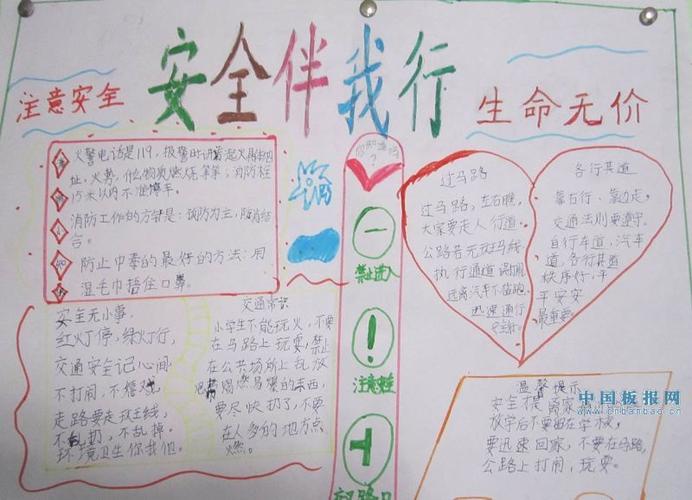 安全伴我行
注意安全
生命无价
火警电话是119,报警时讲清起火具体地
址,火势,什么物质燃烧等等;消防栓
15米以内不准停车。
消防工作的方针是:预防为主,防消结
合。
防止中毒的最好的方法:用
湿毛巾捂住口鼻。
你知道吗
?
禁止进入
注意安全
过马路
过马路,左右瞧,
大家要走人行道。
公路若无斑马线
执行通道
远离汽车不苗跑,
迅速通行
各行其道
靠右行、靠边走,
交通法则要遵守。
自行车道,汽车
道,各行其道
秩序好,平
平安安
最重要
安全无小事
红灯停,绿灯行,
交通安全记心间
不打闹,不嬉戏
走路要走斑线
不乱扔,不乱掉。
环境卫生你我他。
交通常识
小学生不能玩火,不要
在马路上玩耍,禁止
在公共场所上乱放
易燃易爆的东西,
要尽快扔了,不要
在人多的地方点
燃。
温馨提示
安全
放学后不要留在学校,
要迅速回家,不要在马路,
公路上打闹,玩耍。
中国板报网
www.cnbanbao.cn